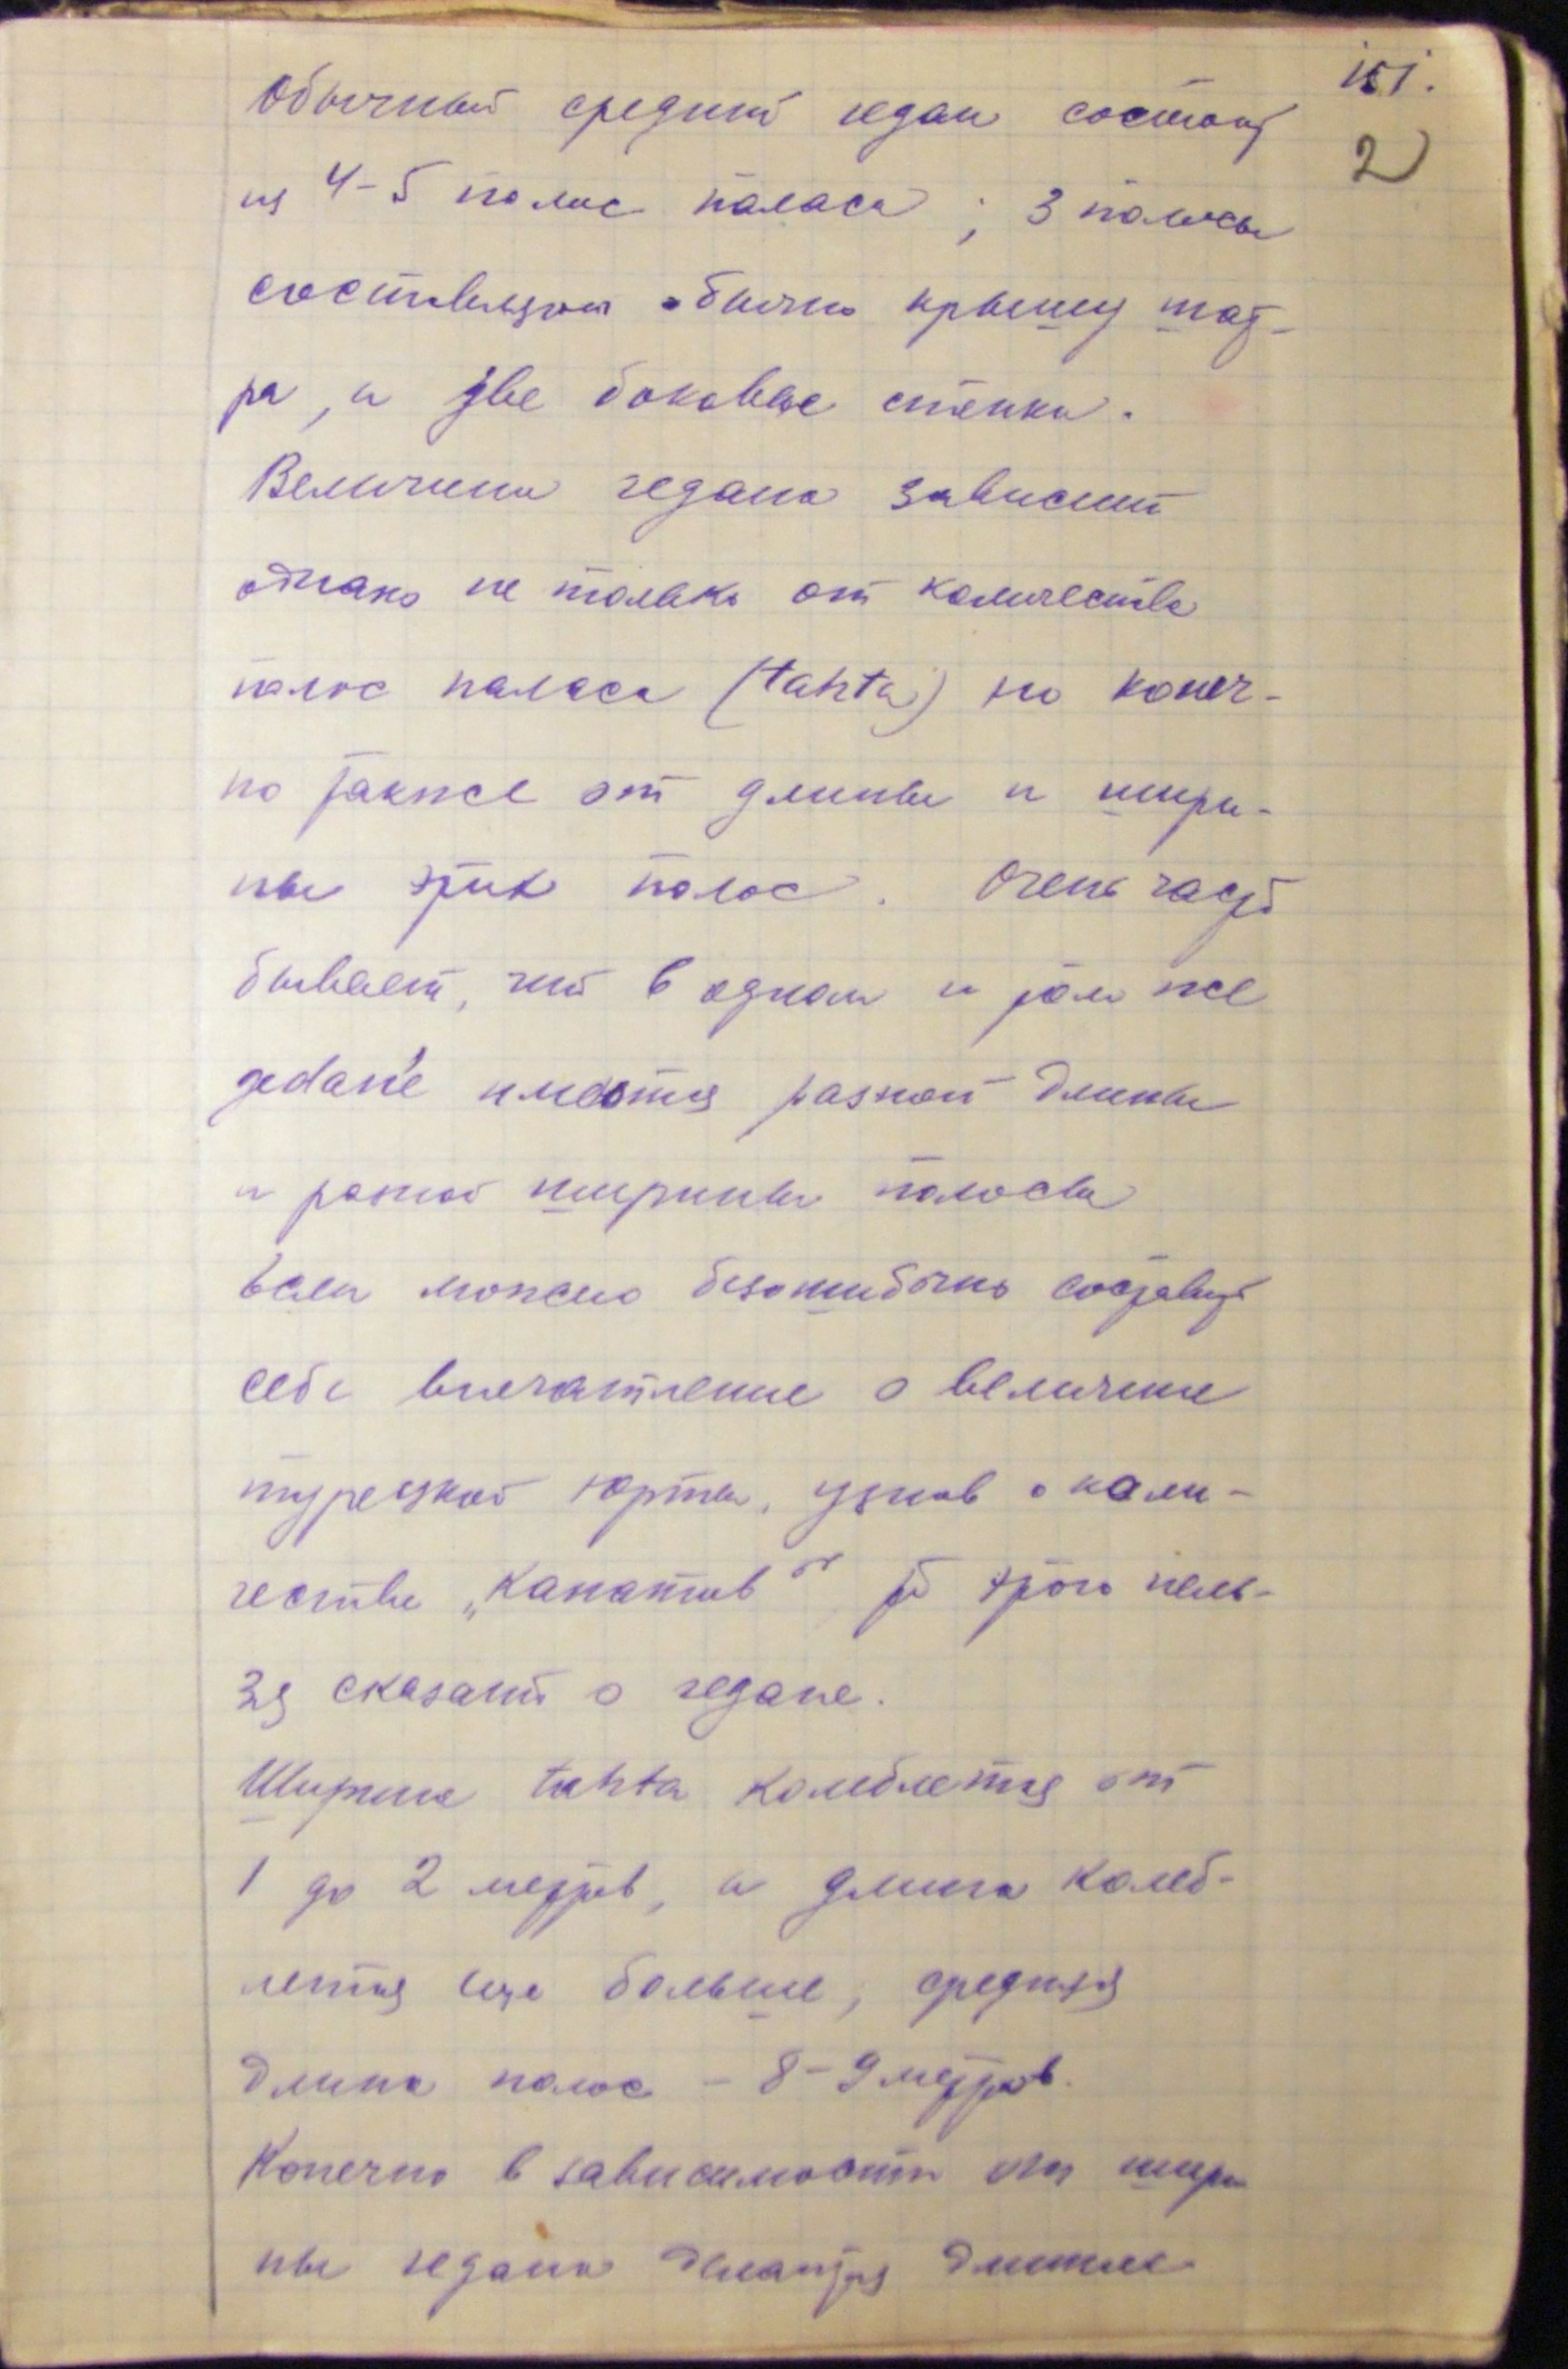 151.
2
Обычный средний гедан состоит
из 4-5 полос паласа; 3 полосы
составляют обычно крышу шат-
ра, а две боковые стенки.
Величина гедана зависит
однако не только от количества
полос паласа (tahta) но конеч-
но также от длины и шири-
ны этих полос. Очень часто
бывает, что в одном и том же
gedan'e имеются разной длины
и разной ширины полосы
Если можно безошибочно составить
себе впечатление о величине
турецкой юрты, узнав о коли-
честве „канатов“ то этого нель-
зя сказать о гедане.
Ширина tahta колеблется от
1 до 2 метров, а длина колеб-
лется еще больше, средняя
длина полос - 8-9 метров.
Конечно в зависимости от шири
ны гедана делаются длиннее